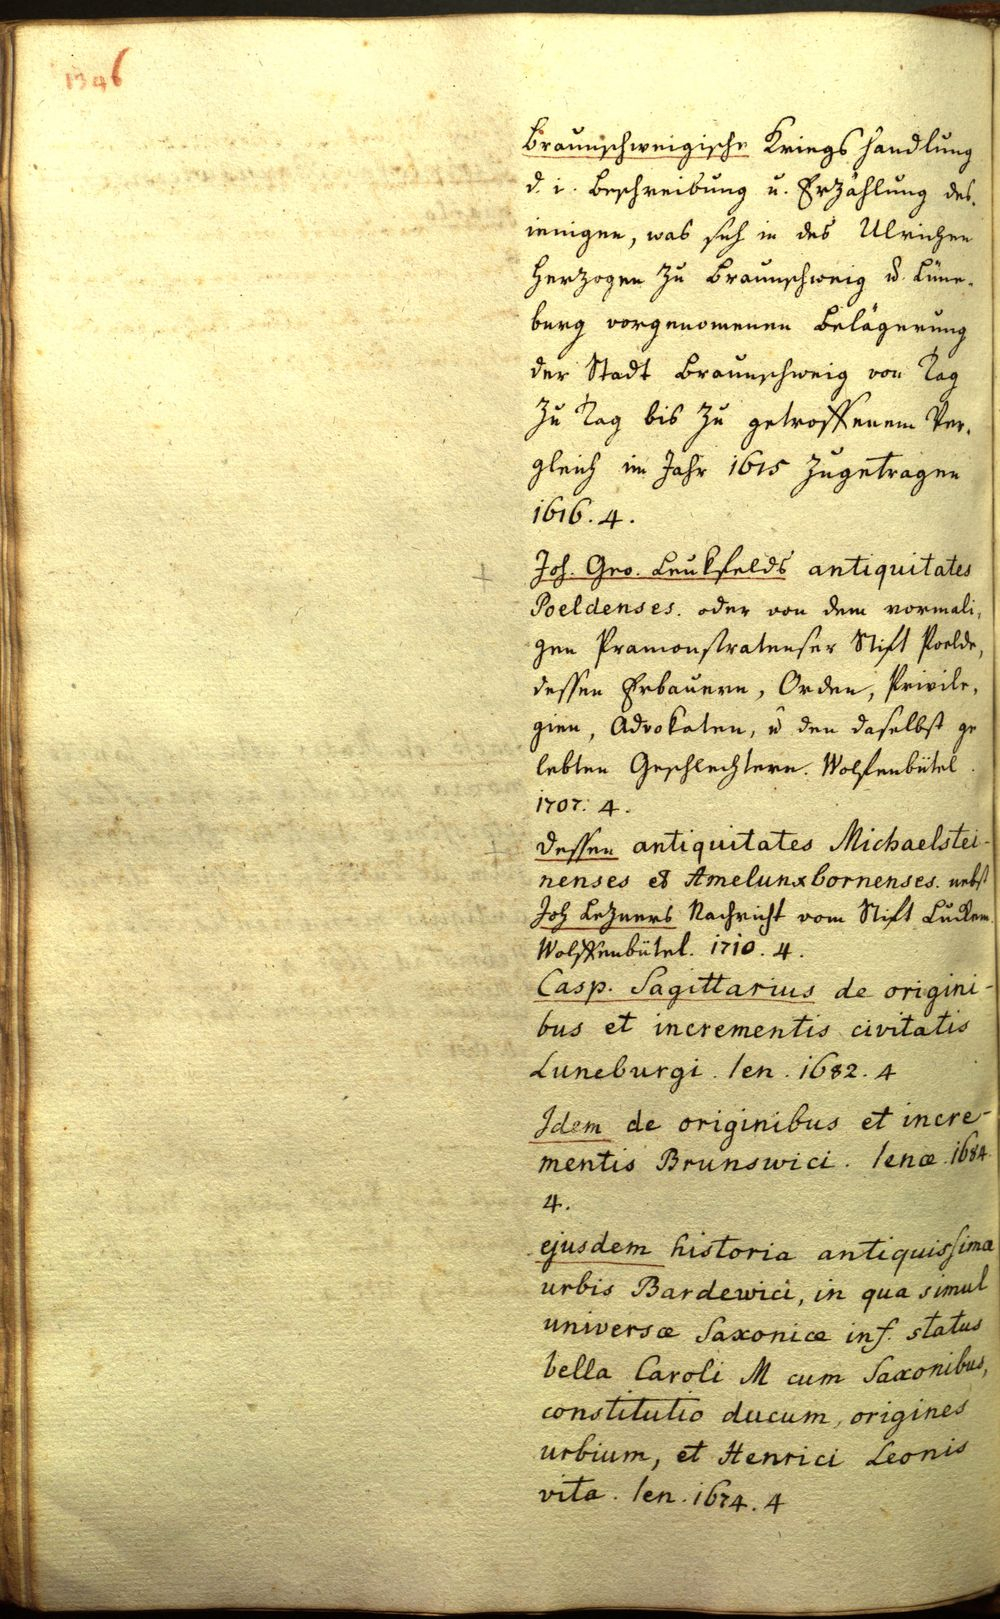 1346
Braunschweigische Kriegshandlung
d. i. Beschreibung u. Erzählung des-
ienigen, was sich in des Ulrichen
Herzogen zu Braunschweig u. Lüne-
burg vorgenomenen Belägerung
der Stadt Braunschweig von Tag
zu Tag bis zu getroffenem Ver-
gleich im Jahr 1615 zugetragen
1616. 4.
+ Joh. Geo. Leukfelds antiquitates
Poeldenses. oder von dem vormali-
gen Pramonstratenser Stift Poelde,
dessen Erbauern, Orden, Privile-
gien, Advokaten, u den daselbst ge
lebten Geschlechtern. Wolfenbütel
1707. 4.
+ dessen antiquitates Michaelstei-
nenses et Amelunxbornenses. nebst
Joh Lezners Nachricht vom Stift
Wolffenbütel. 1710. 4.
Casp. Sagittarius de origini-
bus et incrementis civitatis
Luneburgi. Ien. 1682. 4
Idem de originibus et incre-
mentis Brunswici. Ienæ. 1684.
4.
ejusdem historia antiquissima
urbis Bardewici, in qua simul
universæ Saxonicæ inf. status
bella Caroli M cum Saxonibus,
constitutio ducum, origines
urbium, et Henrici Leonis
vita. Ien. 1674. 4